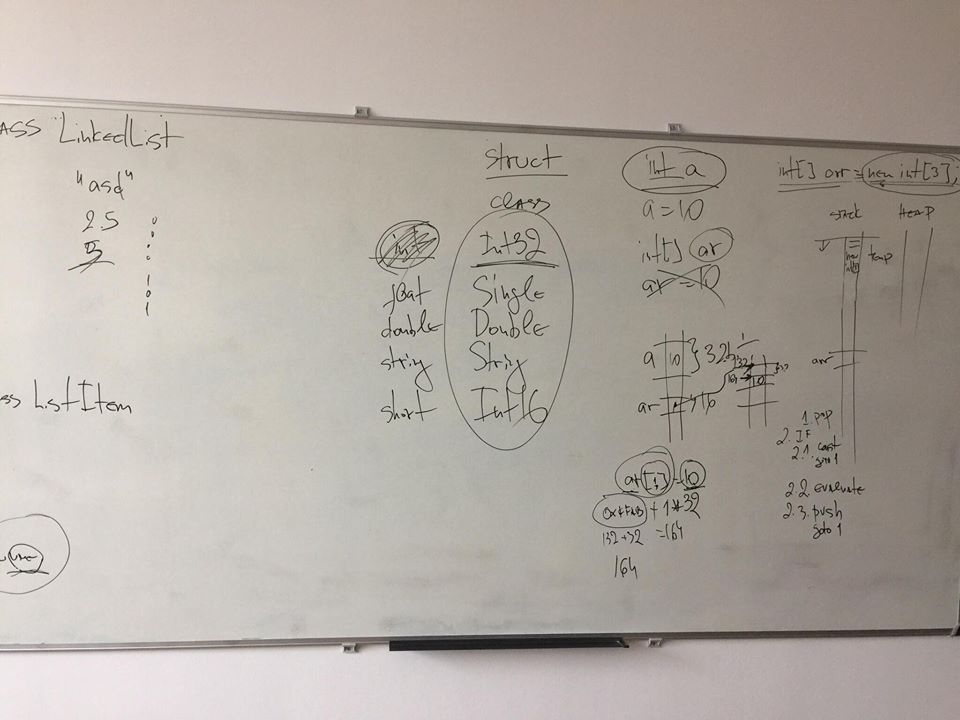 ASS LinkedList
"asd"
2.5
3
ss ListItem
struct
CLASS
int Int32
float Single
double Double
string String
short Int16
int a
a=10
int[] ar
ar = 10
a 10 } 32b
ar
ar[1] = 10
+ 1*32
132+32 =164
164
int[] arr = new int[3];
STACK HEAP
new
temp
arr
1. pop
2. IF
2.1. cast
goto 1
2.2. evaluate
2.3. push
goto 1